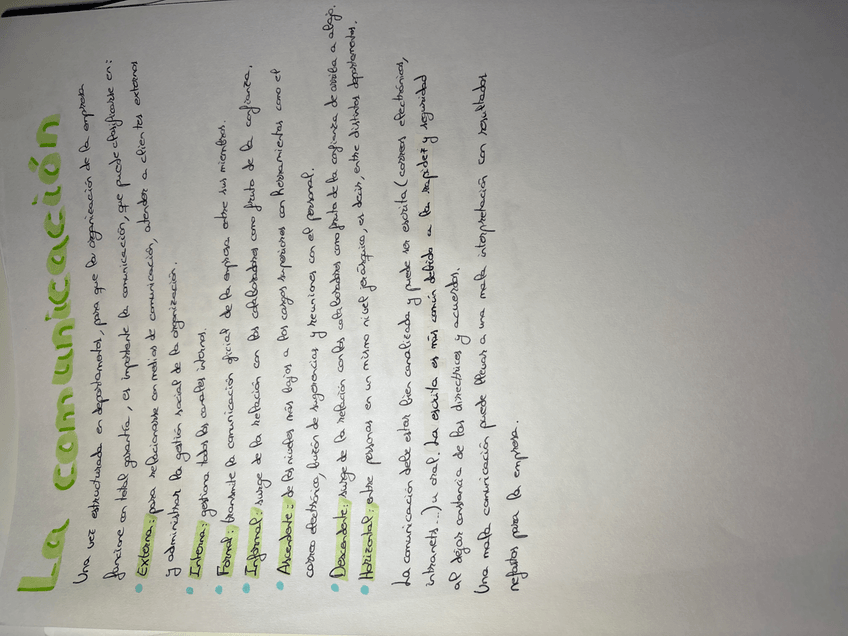 La comunicación
Una vez estructurada en departamentos, para que la organización de la empresa
funcione con total garantía, es importante la comunicación, que puede clasificarse en:
• Externa: para relacionarse con medios de comunicación, atender a clientes externos
y administrar la gestión social de la organización.
• Interna: gestiona todos los canales internos.
• Formal: transmite la comunicación oficial de la empresa entre sus miembros.
• Informal: surge de la relación con los colaboradores como fruto de la confianza.
• Ascendente: de los niveles más bajos a los cargos superiores con herramientas como el
correo electrónico, buzón de sugerencias y reuniones con el personal.
• Descendente: surge de la relación con los colaboradores como fruto de la confianza de arriba a abajo.
• Horizontal: entre personas en un mismo nivel jerárquico, es decir, entre distintos departamentos.
La comunicación debe estar bien canalizada y puede ser escrita (correos electrónicos,
intranets...) u oral. La escrita es más común debido a la rapidez y seguridad
al dejar constancia de las directrices y acuerdos.
Una mala comunicación puede llevar a una mala interpretación con resultados
nefastos para la empresa.